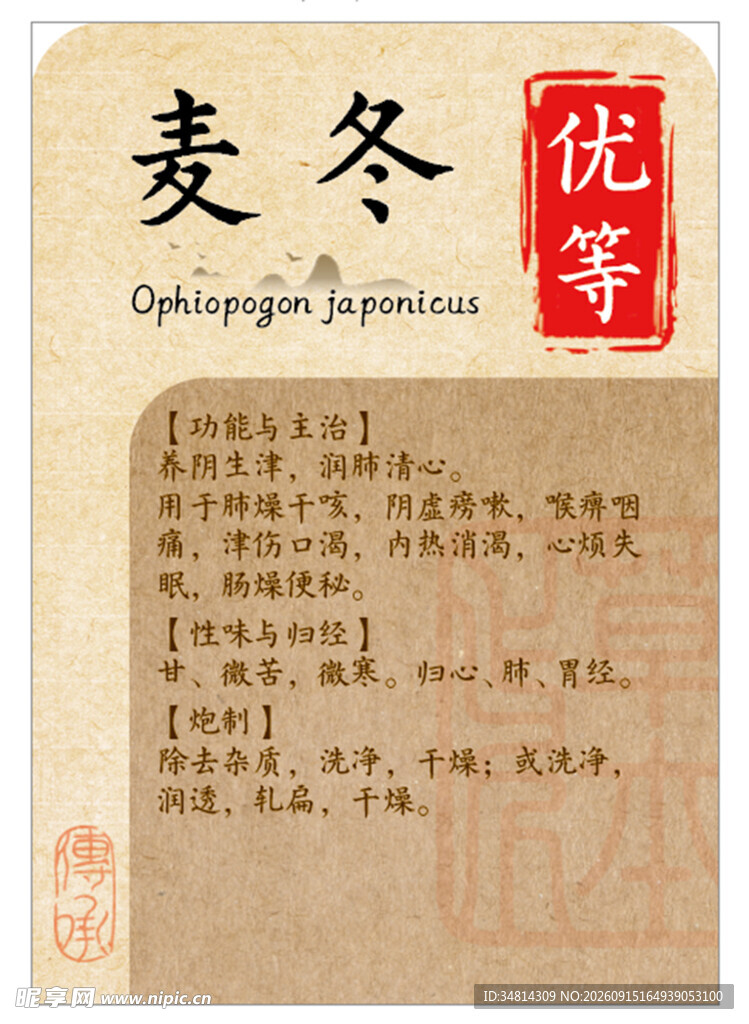 麦冬
优等
Ophiopogon japonicus
【功能与主治】
养阴生津，润肺清心。
用于肺燥干咳，阴虚痨嗽，喉痹咽
痛，津伤口渴，内热消渴，心烦失
眠，肠燥便秘。
【性味与归经】
甘、微苦，微寒。归心、肺、胃经。
【炮制】
除去杂质，洗净，干燥；或洗净，
润透，轧扁，干燥。
傳承
昵享网 www.nipic.cn
ID:34814309 NO:20260915164939053100